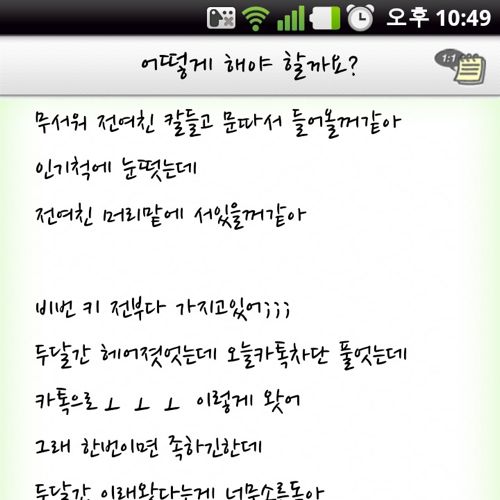 오후 10:49
어떻게 해야 할까요?
1:1
무서워 전여친 칼들고 문따서 들어올꺼같아
인기척에 눈떳는데
전여친 머리맡에 서있을꺼같아
비번 키 전부다 가지고있어;;;
두달간 헤어졋엇는데 오늘카톡차단 풀엇는데
카톡으로 ㅗ ㅗ ㅗ 이렇게 왓어
그래 한번이면 족하긴한데
두달간 이래왓다는게 너무소르돋아